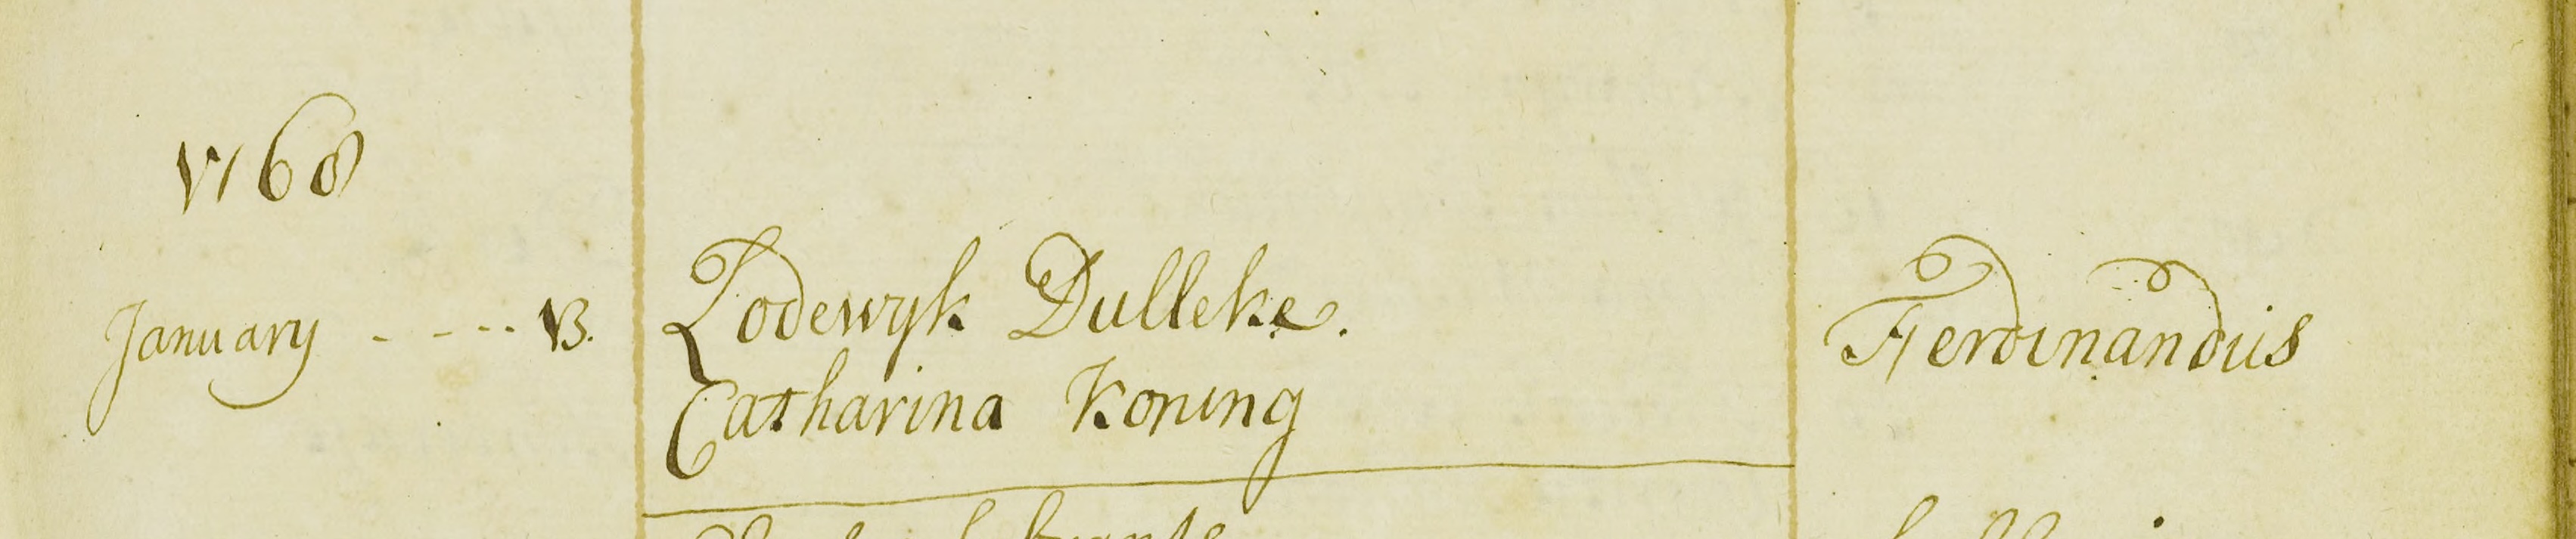 1768
January - - - - 13.
Lodewyk Dulleke.
Catharina Koning
Ferdinandus